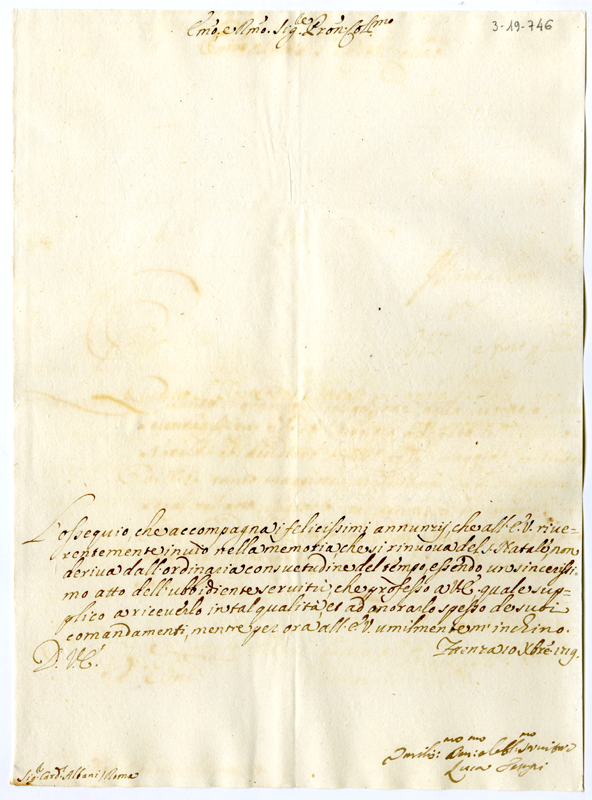 3-19-746
Emo, e Rmo. Sig.re Pron Col.mo
L'ossequio che accompagna i felicissimi annunzij che all'E.V. rive=
rentemente invio nella memoria che si rinuova del S. Natale non
deriva dall'ordinaria consuetudine del tempo, essendo un sincerissi=
mo atto dell'ubbidiente servitù, che professo a V.E. quale sup=
plico a riceverlo in tal qualità, et ad onorarlo spesso de suoi
comandamenti, mentre per ora all'E.V. umilmente m'inchino.
D. V.E.
Faenza 10 Xbre 1719.
Umilis:mo Servitore
Luca
Sig.r Card.l Albani / Roma